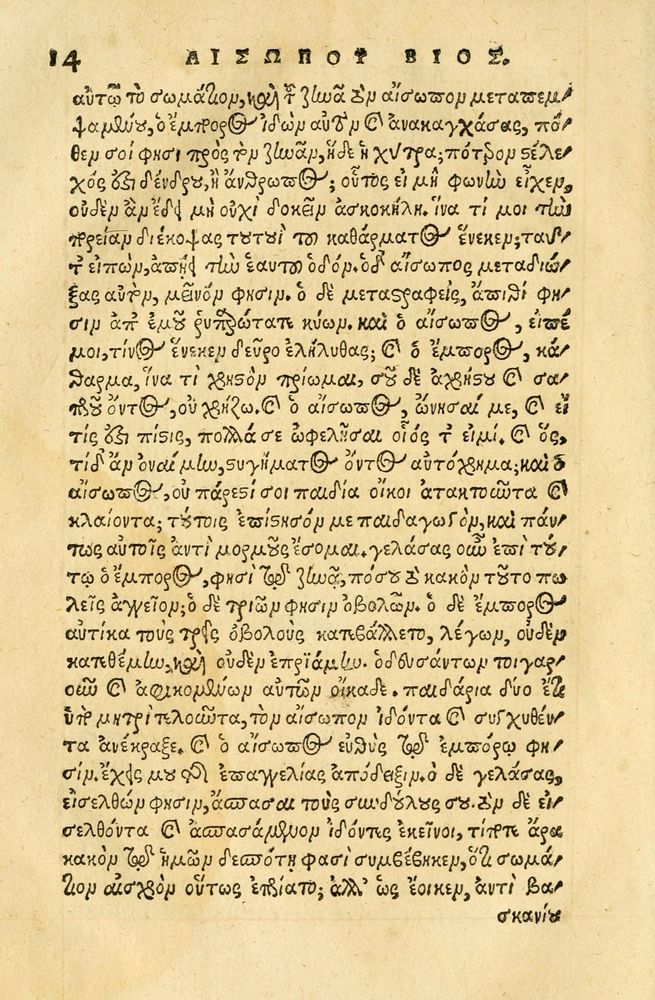 14 ΑΙΣΩΠΟΥ ΒΙΟΣ.
αὐτῷ τὸ σωμάτιον, καὶ τ͂ ζωᾶ τὸν αἴσωπον μεταπεμ-
ψαμένου, ὁ ἔμπορος ἰδὼν αὐτὸν καὶ ἀνακαγχάσας, πό-
θεν σοί φησι πρὸς τὸν ζωᾶν, ἥδε ἡ χύτρα; πότερον στέλε-
χός ἐστι δένδρου, ἢ ἄνθρωπος; οὗτος εἰ μὴ φωνὴν εἶχεν,
οὐδὲν ἂν ἔδει μὴ οὐχὶ δοκεῖν ἀσκοκήλη. ἵνα τί μοι τὴν
πορείαν διέκοψας τουτουὶ τοῦ καθάρματος ἕνεκεν; ταῦ-
τ᾽ εἰπὼν, ἀπῄει τὴν ἑαυτοῦ ὁδόν. ὁ δ᾽ αἴσωπος μεταδιώ-
ξας αὐτὸν, μεῖνόν φησιν. ὁ δὲ μεταστραφεὶς, ἄπιθί φη-
σιν ἀπ᾽ ἐμοῦ ῥυπαρώτατε κύων. καὶ ὁ αἴσωπος, εἰπέ
μοι, τίνος ἕνεκεν δεῦρο ἐλήλυθας; καὶ ὁ ἔμπορος, κά-
θαρμα, ἵνα τὶ χρηστὸν πρίωμαι, σοῦ δὲ ἀχρήστου καὶ σα-
προῦ ὄντος, οὐ χρῄζω. καὶ ὁ αἴσωπος, ὤνησαί με, καὶ εἴ
τίς ἐστι πίστις, πολλά σε ὠφελῆσαι οἷός τ᾽ εἰμί. καὶ ὃς,
τί δ᾽ ἂν ὀναίμην, στυγήματος ὄντος αὐτόχρημα; καὶ ὁ
αἴσωπος, οὐ πάρεστί σοι παιδία οἴκοι ἀτακτοῦντα καὶ
κλαίοντα; τούτοις ἐπίστησόν με παιδαγωγὸν, καὶ πάν-
τως αὐτοῖς ἀντὶ μορμοῦς ἔσομαι. γελάσας οὖν ἐπὶ τού-
τῳ ὁ ἔμπορος, φησὶ τῷ ζωᾷ, πόσου τὸ κακὸν τοῦτο πω-
λεῖς ἀγγεῖον; ὁ δὲ τριῶν φησιν ὀβολῶν. ὁ δὲ ἔμπορος
αὐτίκα τοὺς τρεῖς ὀβολοὺς κατεβάλλετο, λέγων, οὐδὲν
κατεθέμην, καὶ οὐδὲν ἐπριάμην. ὁδευσάντων τοιγαρ-
οῦν καὶ ἀφικομένων αὐτῶν οἴκαδε. παιδάρια δύο ἔτι
ὑπὸ μητρὶ τελοῦντα, τὸν αἴσωπον ἰδόντα καὶ συγχυθέν-
τα ἀνέκραξε. καὶ ὁ αἴσωπος εὐθὺς τῷ ἐμπόρῳ φη-
σίν. ἔχεις μου τῆς ἐπαγγελίας ἀπόδειξιν. ὁ δὲ γελάσας,
εἰσελθών φησιν, ἄσπασαι τοὺς συνδούλους σου. τὸν δὲ εἰ-
σελθόντα καὶ ἀσπασάμενον ἰδόντες ἐκεῖνοι, τί ποτε ἄρα
κακὸν τῷ ἡμῶν δεσπότῃ φασὶ συμβέβηκεν, ὅτι σωμά-
τιον αἰσχρὸν οὕτως ἐπρίατο; ἀλλ᾽ ὡς ἔοικεν, ἀντὶ βα-
σκανίου